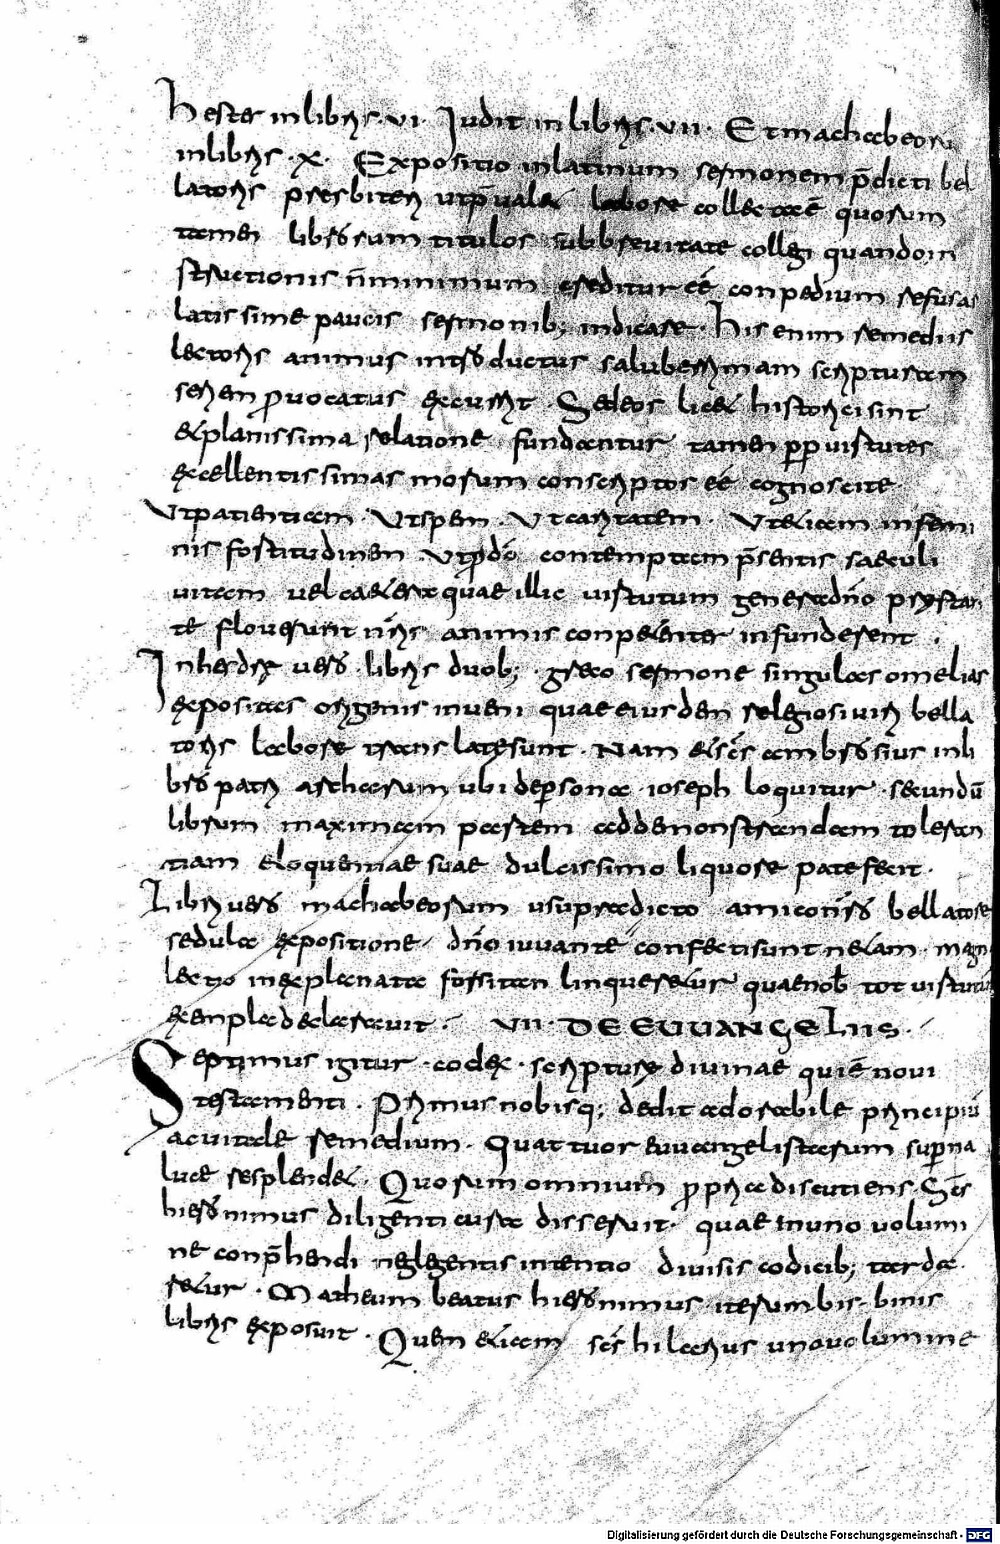 hester in libris · vi · Iudit in libris · vii · Et machabeoru
in libris · x · Expositio in latinum sermonem p̄dicti bel
latoris presbiteri ut p̄ualet labore collectae ē quorum
tamen librorum titulos sub breuitate collegi quando in
structionis n̄ minimum creditur eḗ conpedium refusas
latissime paucis sermonib; indicare · his enim remediis
lectoris animus introductus saluberrimam scripturarum
seriem prouocatus excurrit · Sed eos licet historici sint
et planissima relatione fundantur tamen ꝓp uirtutes
excellentissimas morum conscriptos eḗ cognoscite ·
Ut patientiam · Ut spem · Ut caritatem · Ut etiam in femi
nis fortitudinem · Ut ꝓ dō contemptam p̄sentis saeculi
uitam uel caetera quae illic uirtutum genera dn̄o prestan
te floruerunt nr̄is animis conpetenter infunderent ·
In hesdrę uero · libris duob; · greco sermone singulas omelias
expositas origenis inueni quae eiusdem religiosi uiri bella
toris labore translatę sunt · Nam et sc̄s ambrosius in li
bro patriarcharum ubi de persona ioseph loquitur · secundū
librum maximam partem ad demonstrandam toleran
tiam eloquentiae suae dulcissimo liquore patefecit ·
Libri uero machabeorum usu praedicto amico nr̄o bellatore
sedula expositione dn̄o iuuante confecti sunt ne tam · magn
lectio inexplanata forsitan linqueretur quae nob̄ tot uirtutū
exempla declarauit · VII · DE EUUANGELIIS ·
Septimus igitur · codex · scripturę diuinae qui ē noui
testamenti · Primus nobisq; dedit adorabile principiū
ac uitale remedium · Quattuor euuangelistarum superna
luce resplendet · Quorum omnium propria discutiens · Sc̄s
hieronimus diligenti cura disseruit · quae in uno uolumi
ne conp̄hendi neglegentis intentio diuisis codicib; tarda
retur · Matheum beatus hieronimus iterum bis · binis
libris exposuit · Quem etiam sc̄s hilarius uno uolumine
Digitalisierung gefördert durch die Deutsche Forschungsgemeinschaft - DFG